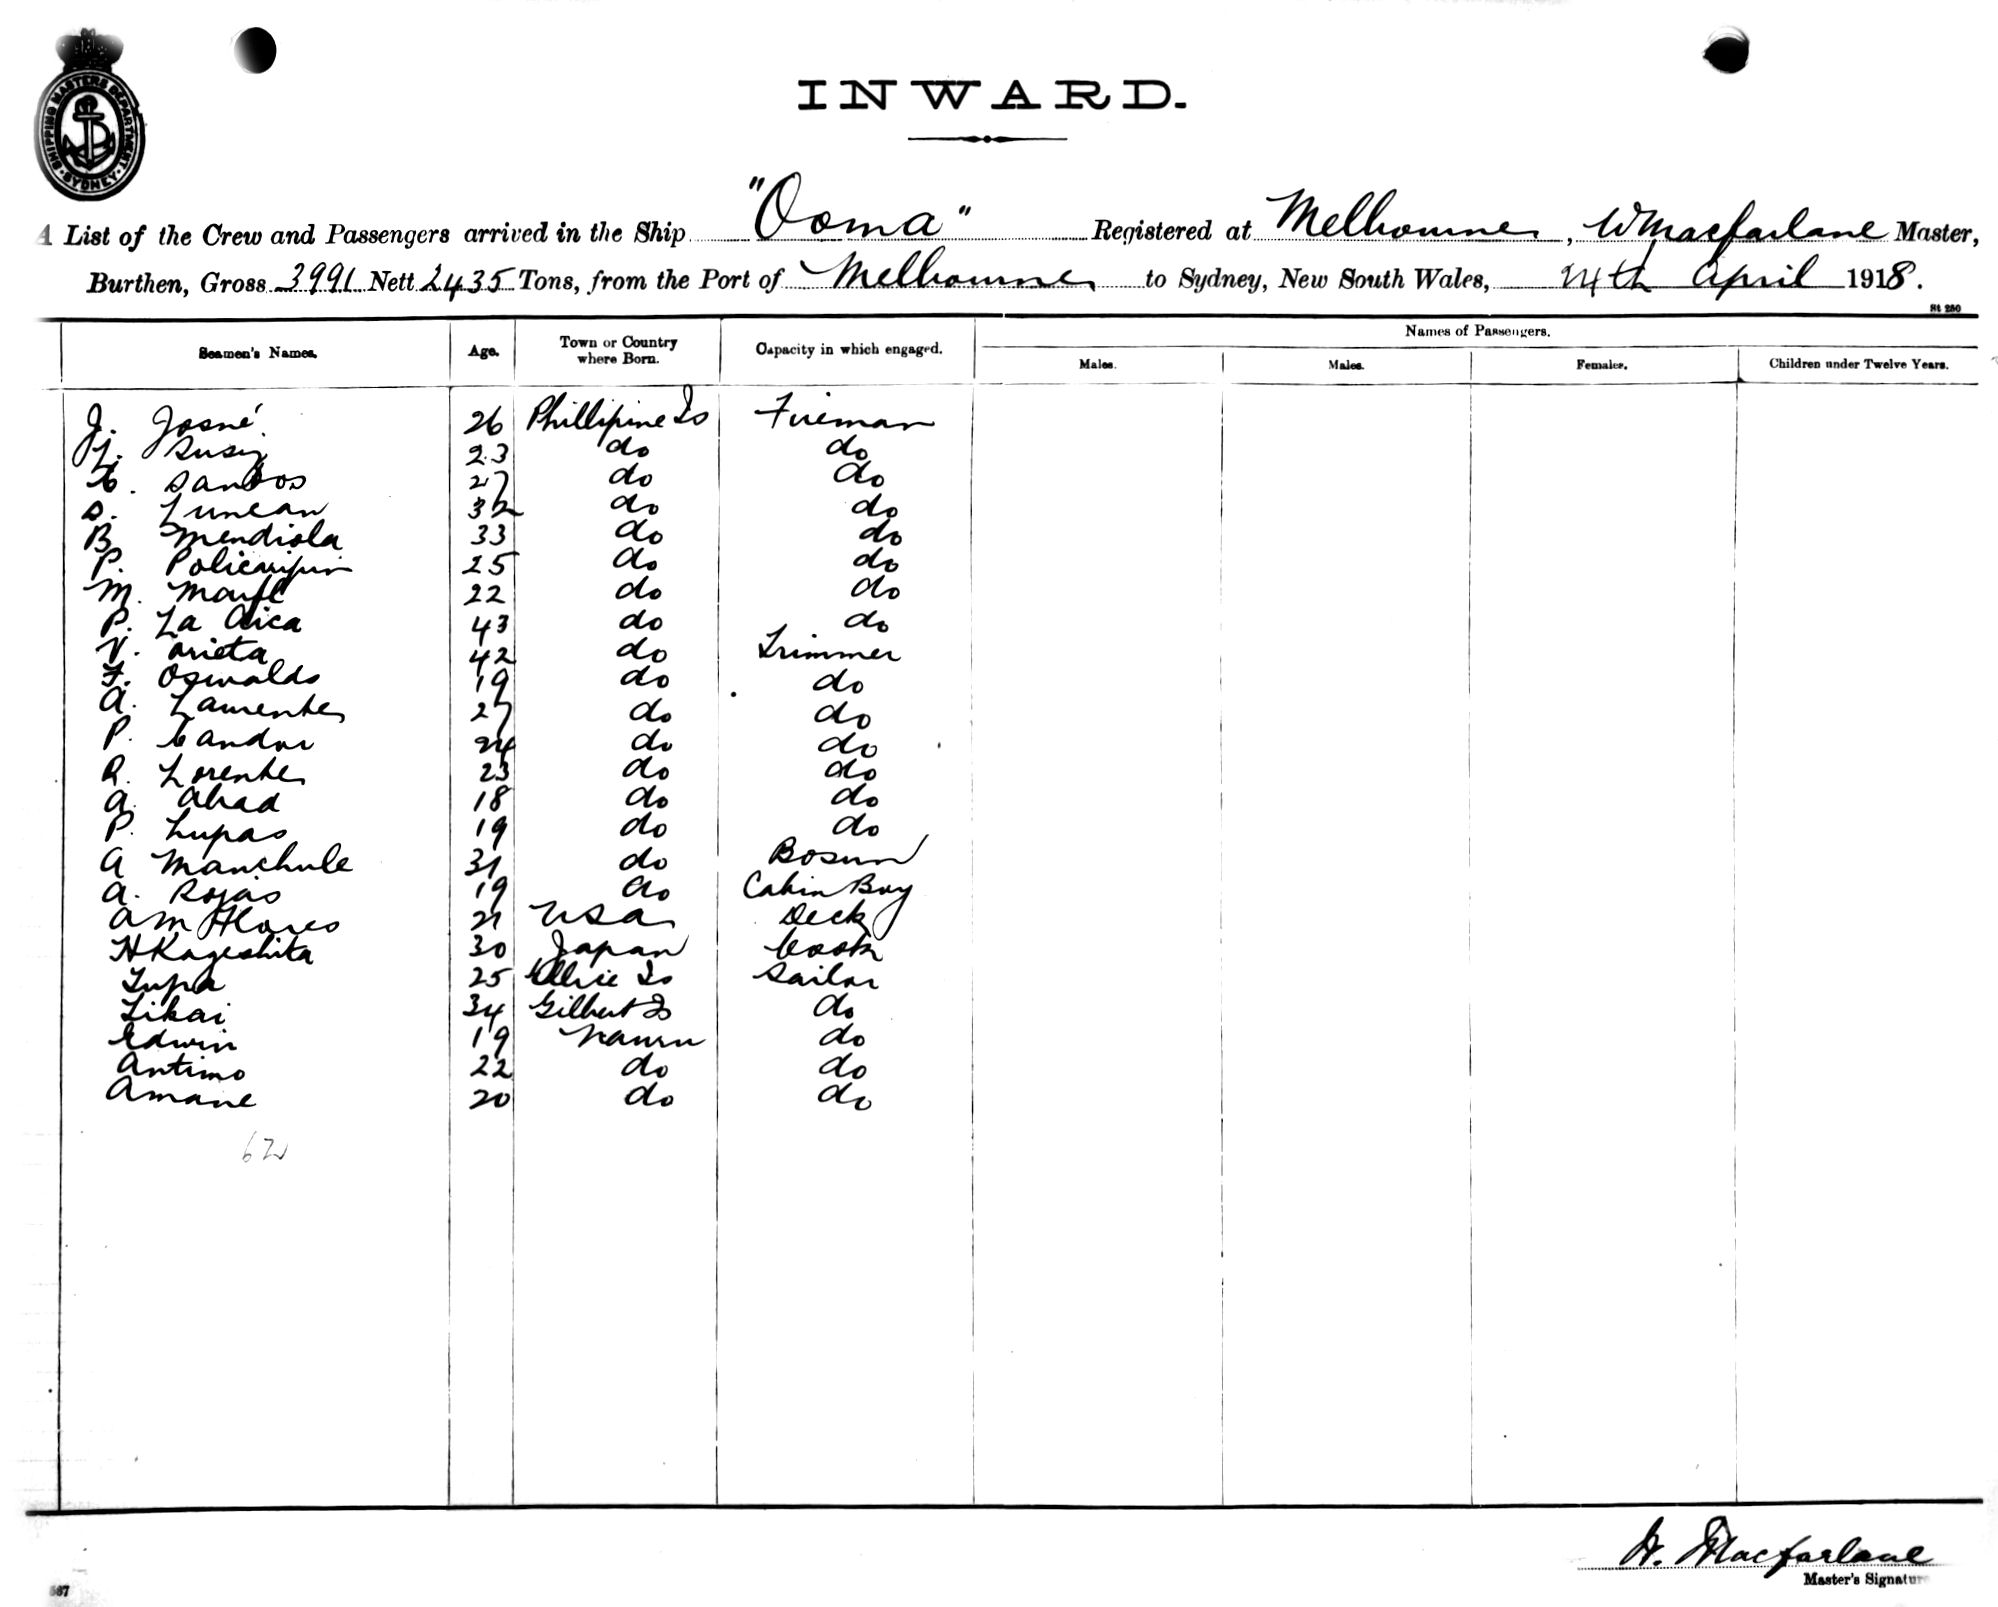 SHIPPING MASTERS DEPARTMENT
SYDNEY
INWARD.
A List of the Crew and Passengers arrived in the Ship "Ooma" Registered at Melbourne, W Macfarlane Master,
Burthen, Gross 3991 Nett 2435 Tons, from the Port of Melbourne to Sydney, New South Wales, 24th April 1918.
St 250
Seamen's Names. Age. Town or Country where Born. Capacity in which engaged. Names of Passengers.
Males. Males. Females. Children under Twelve Years.
J. Josné 26 Phillipine Is Fireman
Susy 23 do do
Santos 27 do do
S. Luncan 32 do do
B Mendiola 33 do do
P. 25 do do
M. 22 do do
P. La Aica 43 do do
V. Arieta 42 do Trimmer
F. Oswaldo 19 do do
A. Laurentes 27 do do
P. Candor 24 do do
R. Lorentes 23 do do
A. Abad 18 do do
P. Lupas 19 do do
A Manchule 31 do Bosun
A. Rojas 19 do Cabin Boy
A M Flores 21 USA Deck
H Kageshita 30 Japan Cook
Tupa 25 Ellice Is Sailor
Tikai 34 Gilbert Is do
Edwin 19 Nauru do
Antimo 22 do do
Amane 20 do do
62
W. Macfarlane
Master's Signature
567